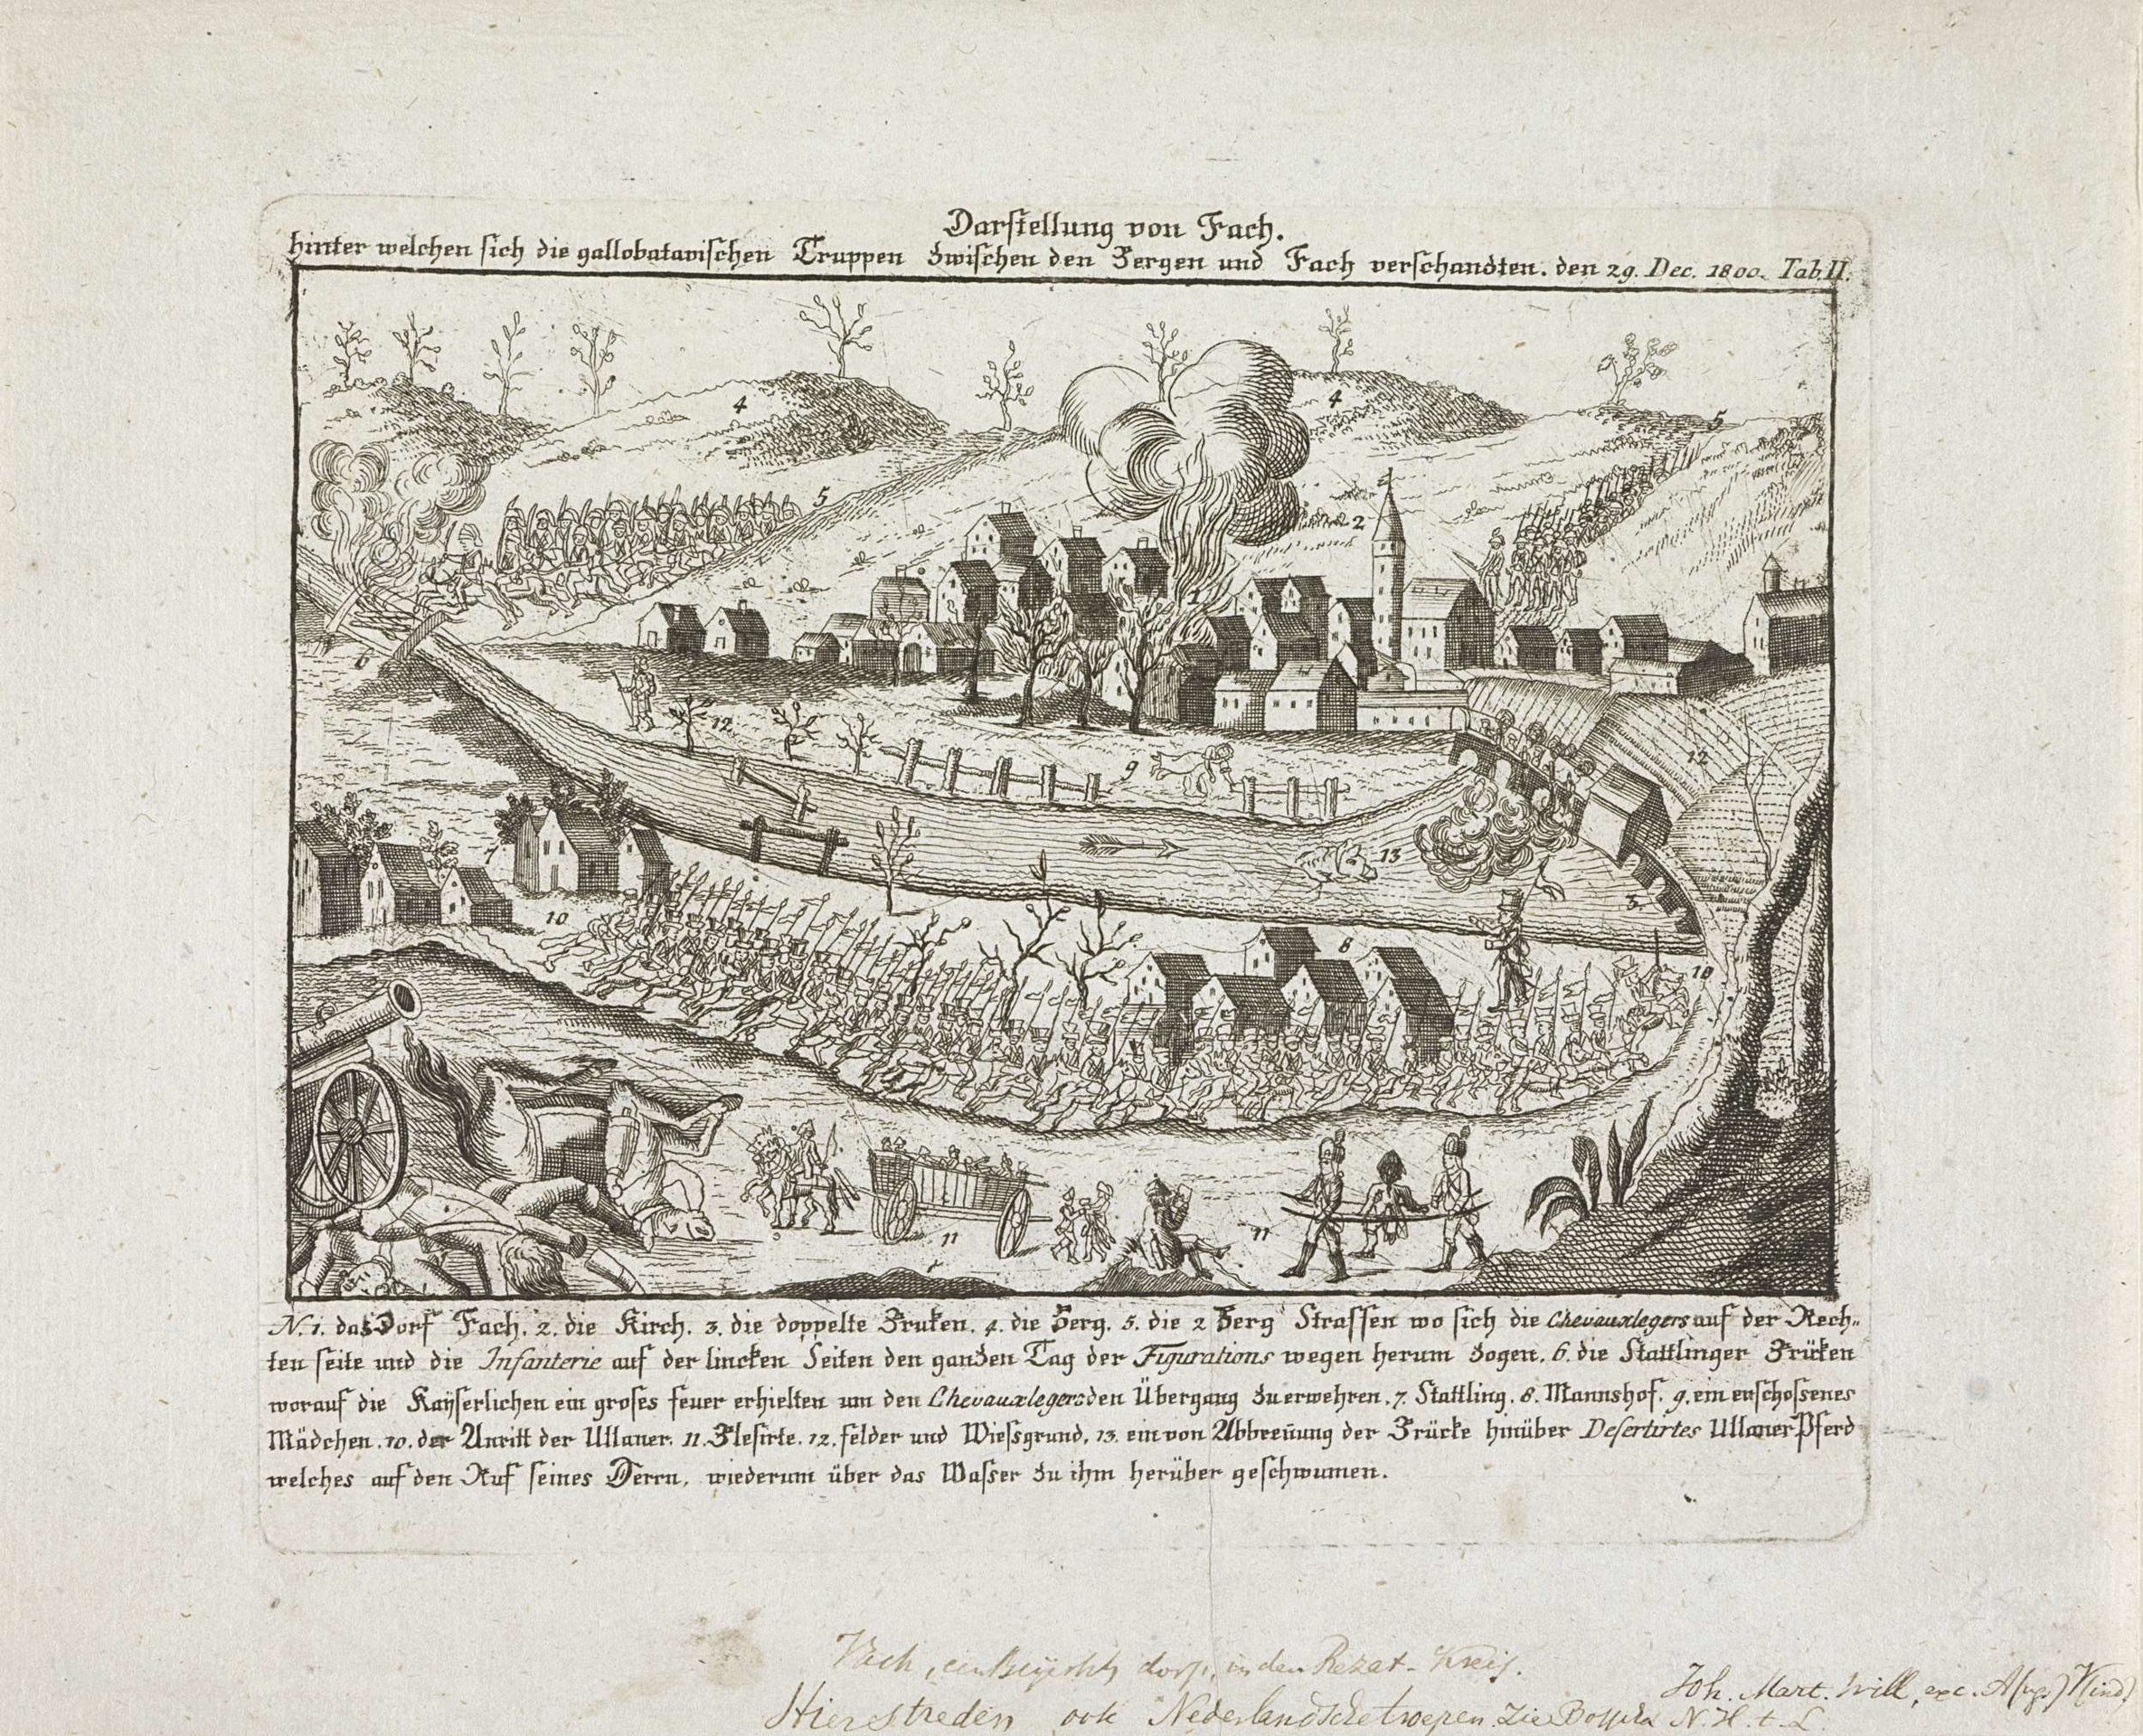 Darstellung von Fach.
hinter welchen sich die gallobatavischen Truppen zwischen den Bergen und Fach verschanzten. den 29. Dec. 1800. Tab. II.
4
4
5
5
2
1
6
12
9
12
7
13
3.
10
8
10
11
11
N. 1. das Dorf Fach. 2. die Kirch. 3. die doppelte Bruken. 4. die Berg. 5. die 2 Berg Strassen wo sich die Chevauxlegers auf der Rech-
ten seite und die Infanterie auf der lincken Seiten den ganzen Tag der Figurations wegen herum zogen. 6. die Stattlinger Brücken
worauf die Kayserlichen ein groses feuer erhielten um den Chevauxlegers den Übergang zuerwehren. 7. Stattling. 8. Mannshof. 9. ein erschossenes
Mädchen. 10. der Anritt der Ullaner. 11. Blesirte. 12. felder und Wiessgrund. 13. ein von Abbreñung der Brücke hinüber Desertirtes Ullaner Pferd
welches auf den Ruf seines Herrn, wiederum über das Wasser zu ihm herüber geschwumen.
Vach, dorp, in den Rezat-Kreis.
Joh. Mart. Will, exc. A[ug.] V[ind.]
Hier streden ook Nederlandsche troepen. Zie Bosscha N. H. t. L.